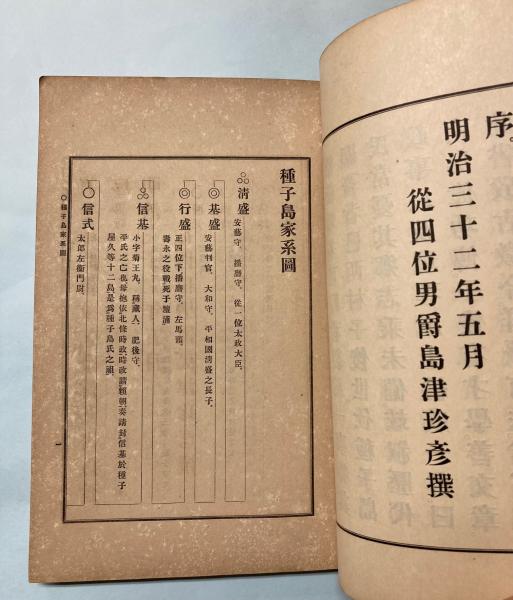 序。
明治三十二年五月
從四位男爵島津珍彥撰
種子島家系圖
淸盛
安藝守、播磨守、從一位太政大臣。
基盛
安藝判官、大和守、平相國淸盛之長子。
行盛
正四位下播磨守、左馬頭。
壽永之役戰死于壇浦
信基
小字菊王丸、稱藏人、肥後守。
平氏之亡也母抱依北條時政、時政請賴朝奏請封信基於種子
屋久等十二島、是爲種子島氏之祖。
信式
太郎左衞門尉。
○種子島家系圖
一